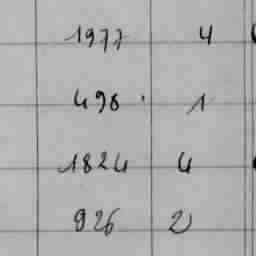 1977 4
498 1
1824 4
926 2